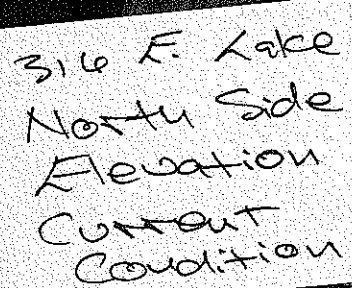 316 E. Lake
North Side
Elevation
Current
Condition